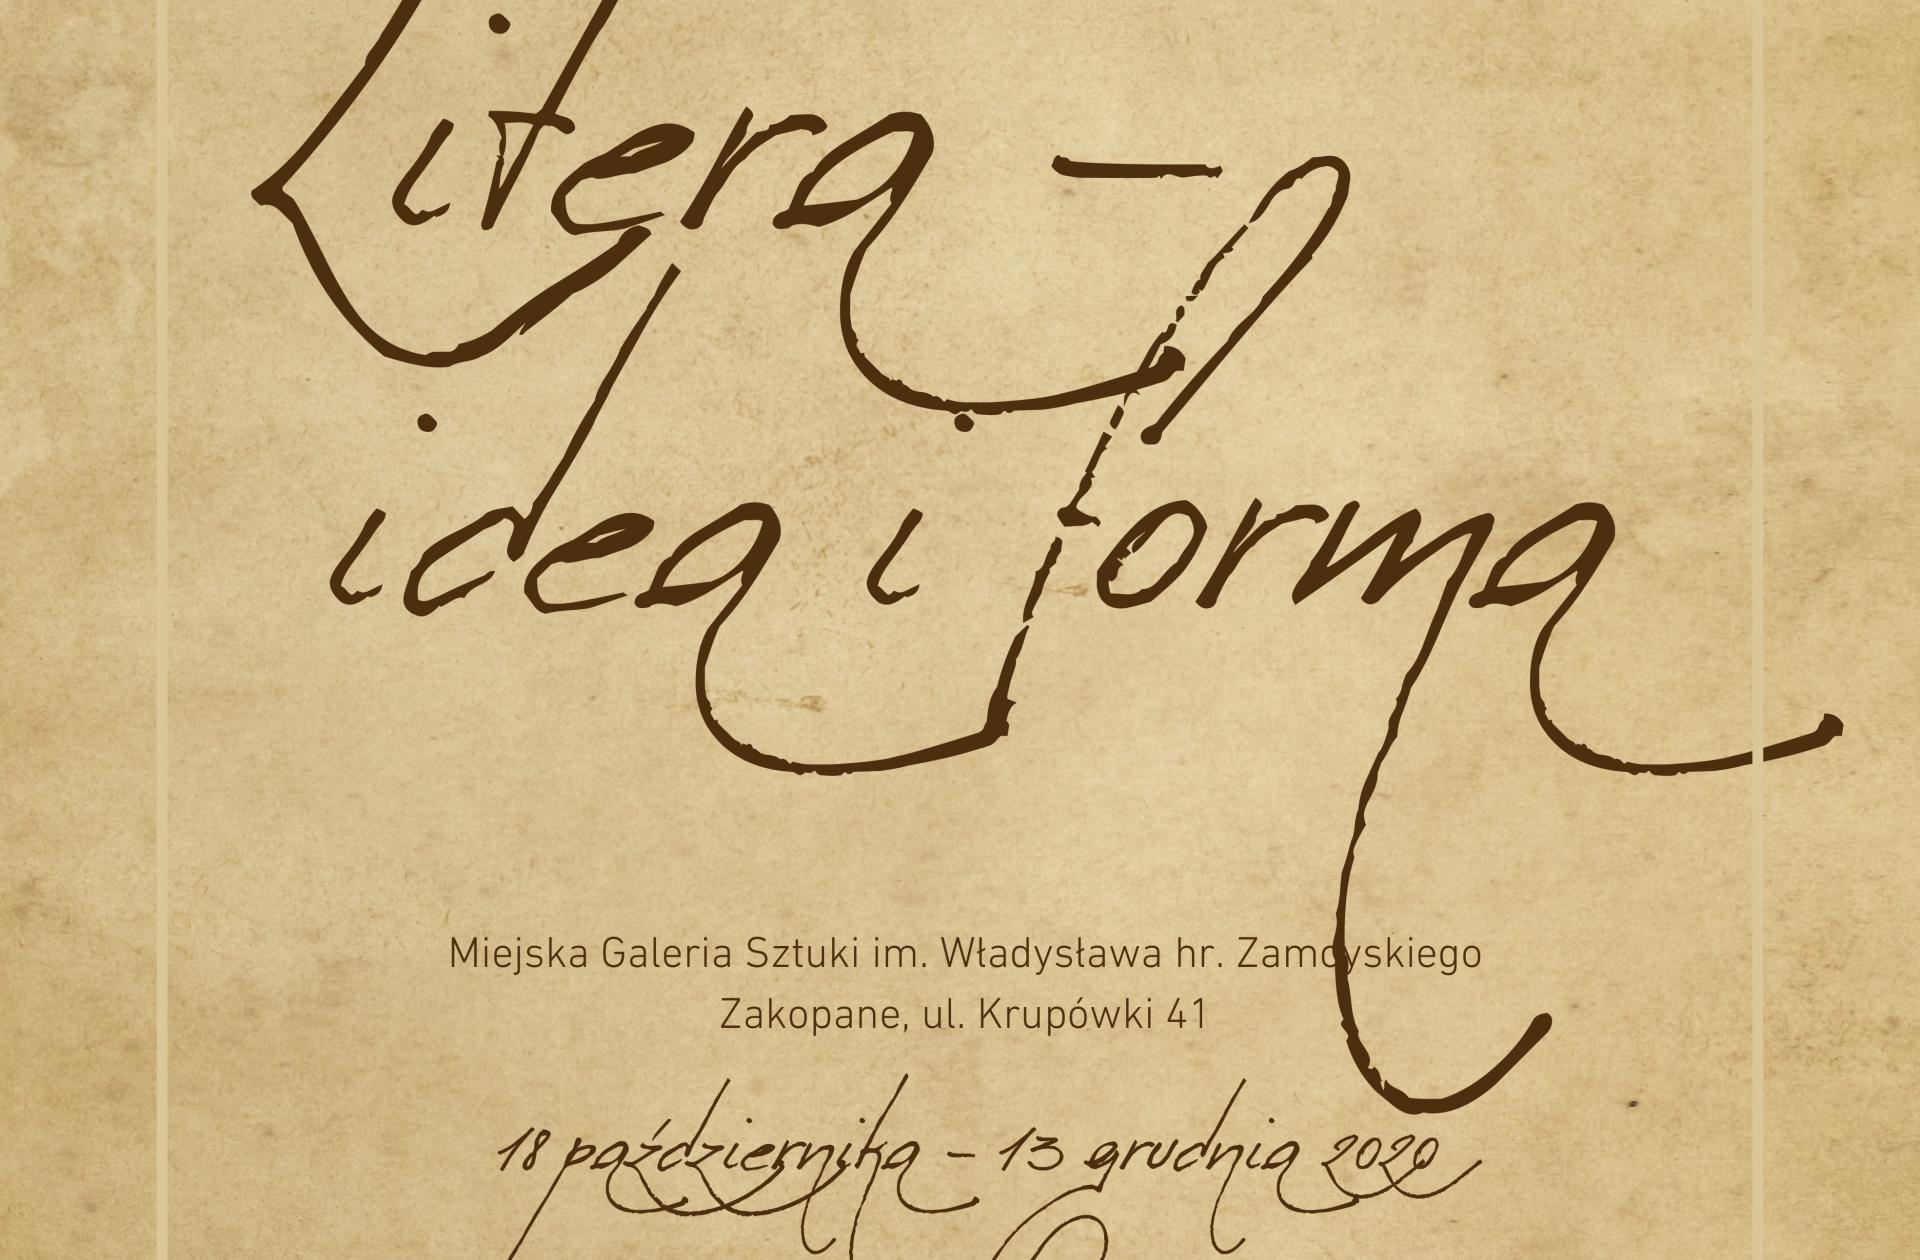 Litera –
idea i forma
Miejska Galeria Sztuki im. Władysława hr. Zamoyskiego
Zakopane, ul. Krupówki 41
18 października – 13 grudnia 2020